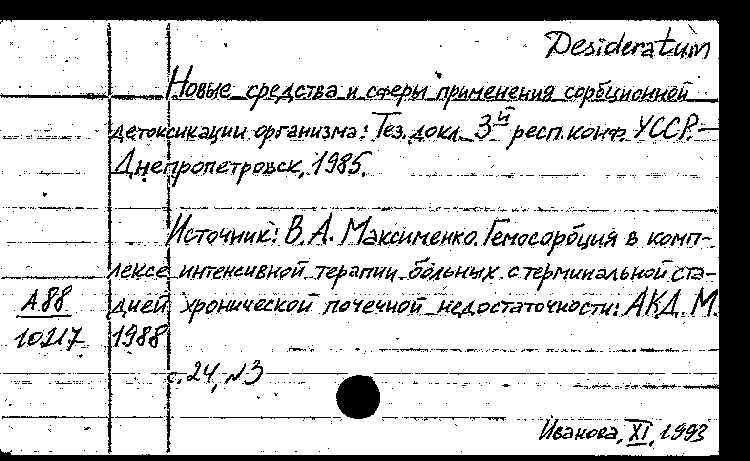 Desideratum
Новые средства и сферы применения сорбционной
детоксикации организма: Тез. докл. 3й респ. конф. УССР. —
Днепропетровск, 1985.
Источник: В. А. Максименко. Гемосорбция в комп-
лексе интенсивной терапии больных с терминальной ста-
дией хронической почечной недостаточности: АКД. М.
1988
А88
10217
с. 24, №3
Иванова, XI, 1993